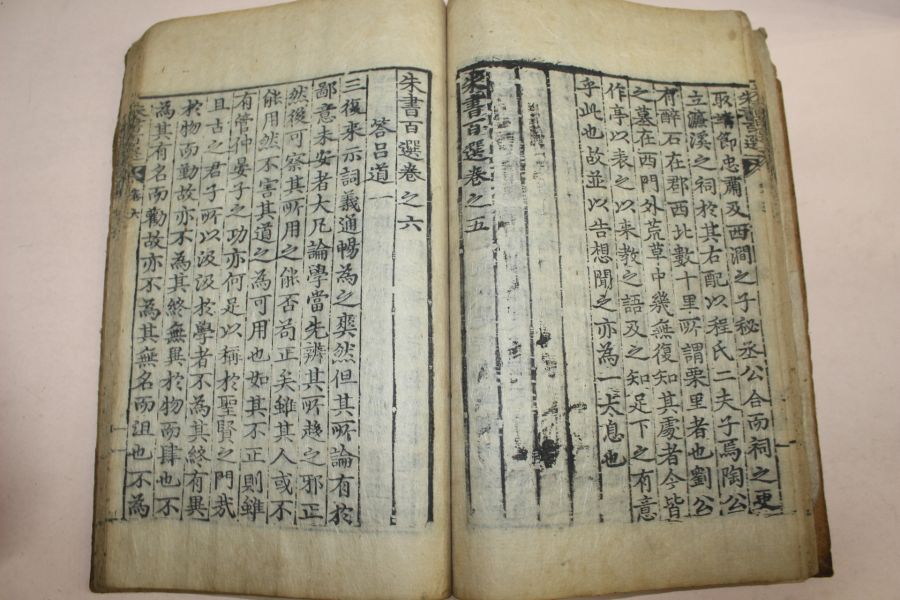 取書節忠肅及西澗之子秘丞公合而祠之更
立濂溪之祠於其右配以程氏二夫子焉陶公
有醉石在郡西北數十里所謂栗里者也劉公
之墓在西門外荒草中幾無復知其處者今皆
作亭以表之以來教之語及之知足下之有意
乎此也故並以告想聞之亦為一大息也
朱書百選卷之五
朱書百選卷之六
答呂道一
三復來示詞義通暢為之爽然但其所論有於
鄙意未安者大凡論學當先辨其所趍之邪正
然後可察其所用之能否苟正矣雖其人或不
能用然不害其道之為可用也如其不正則雖
有管仲晏子之功亦何足以稱於聖賢之門哉
且古之君子所以汲汲於學者不為其終有異
於物而勤故亦不為其終無異於物而肆也不
為其有名而勸故亦不為其無名而沮也不為